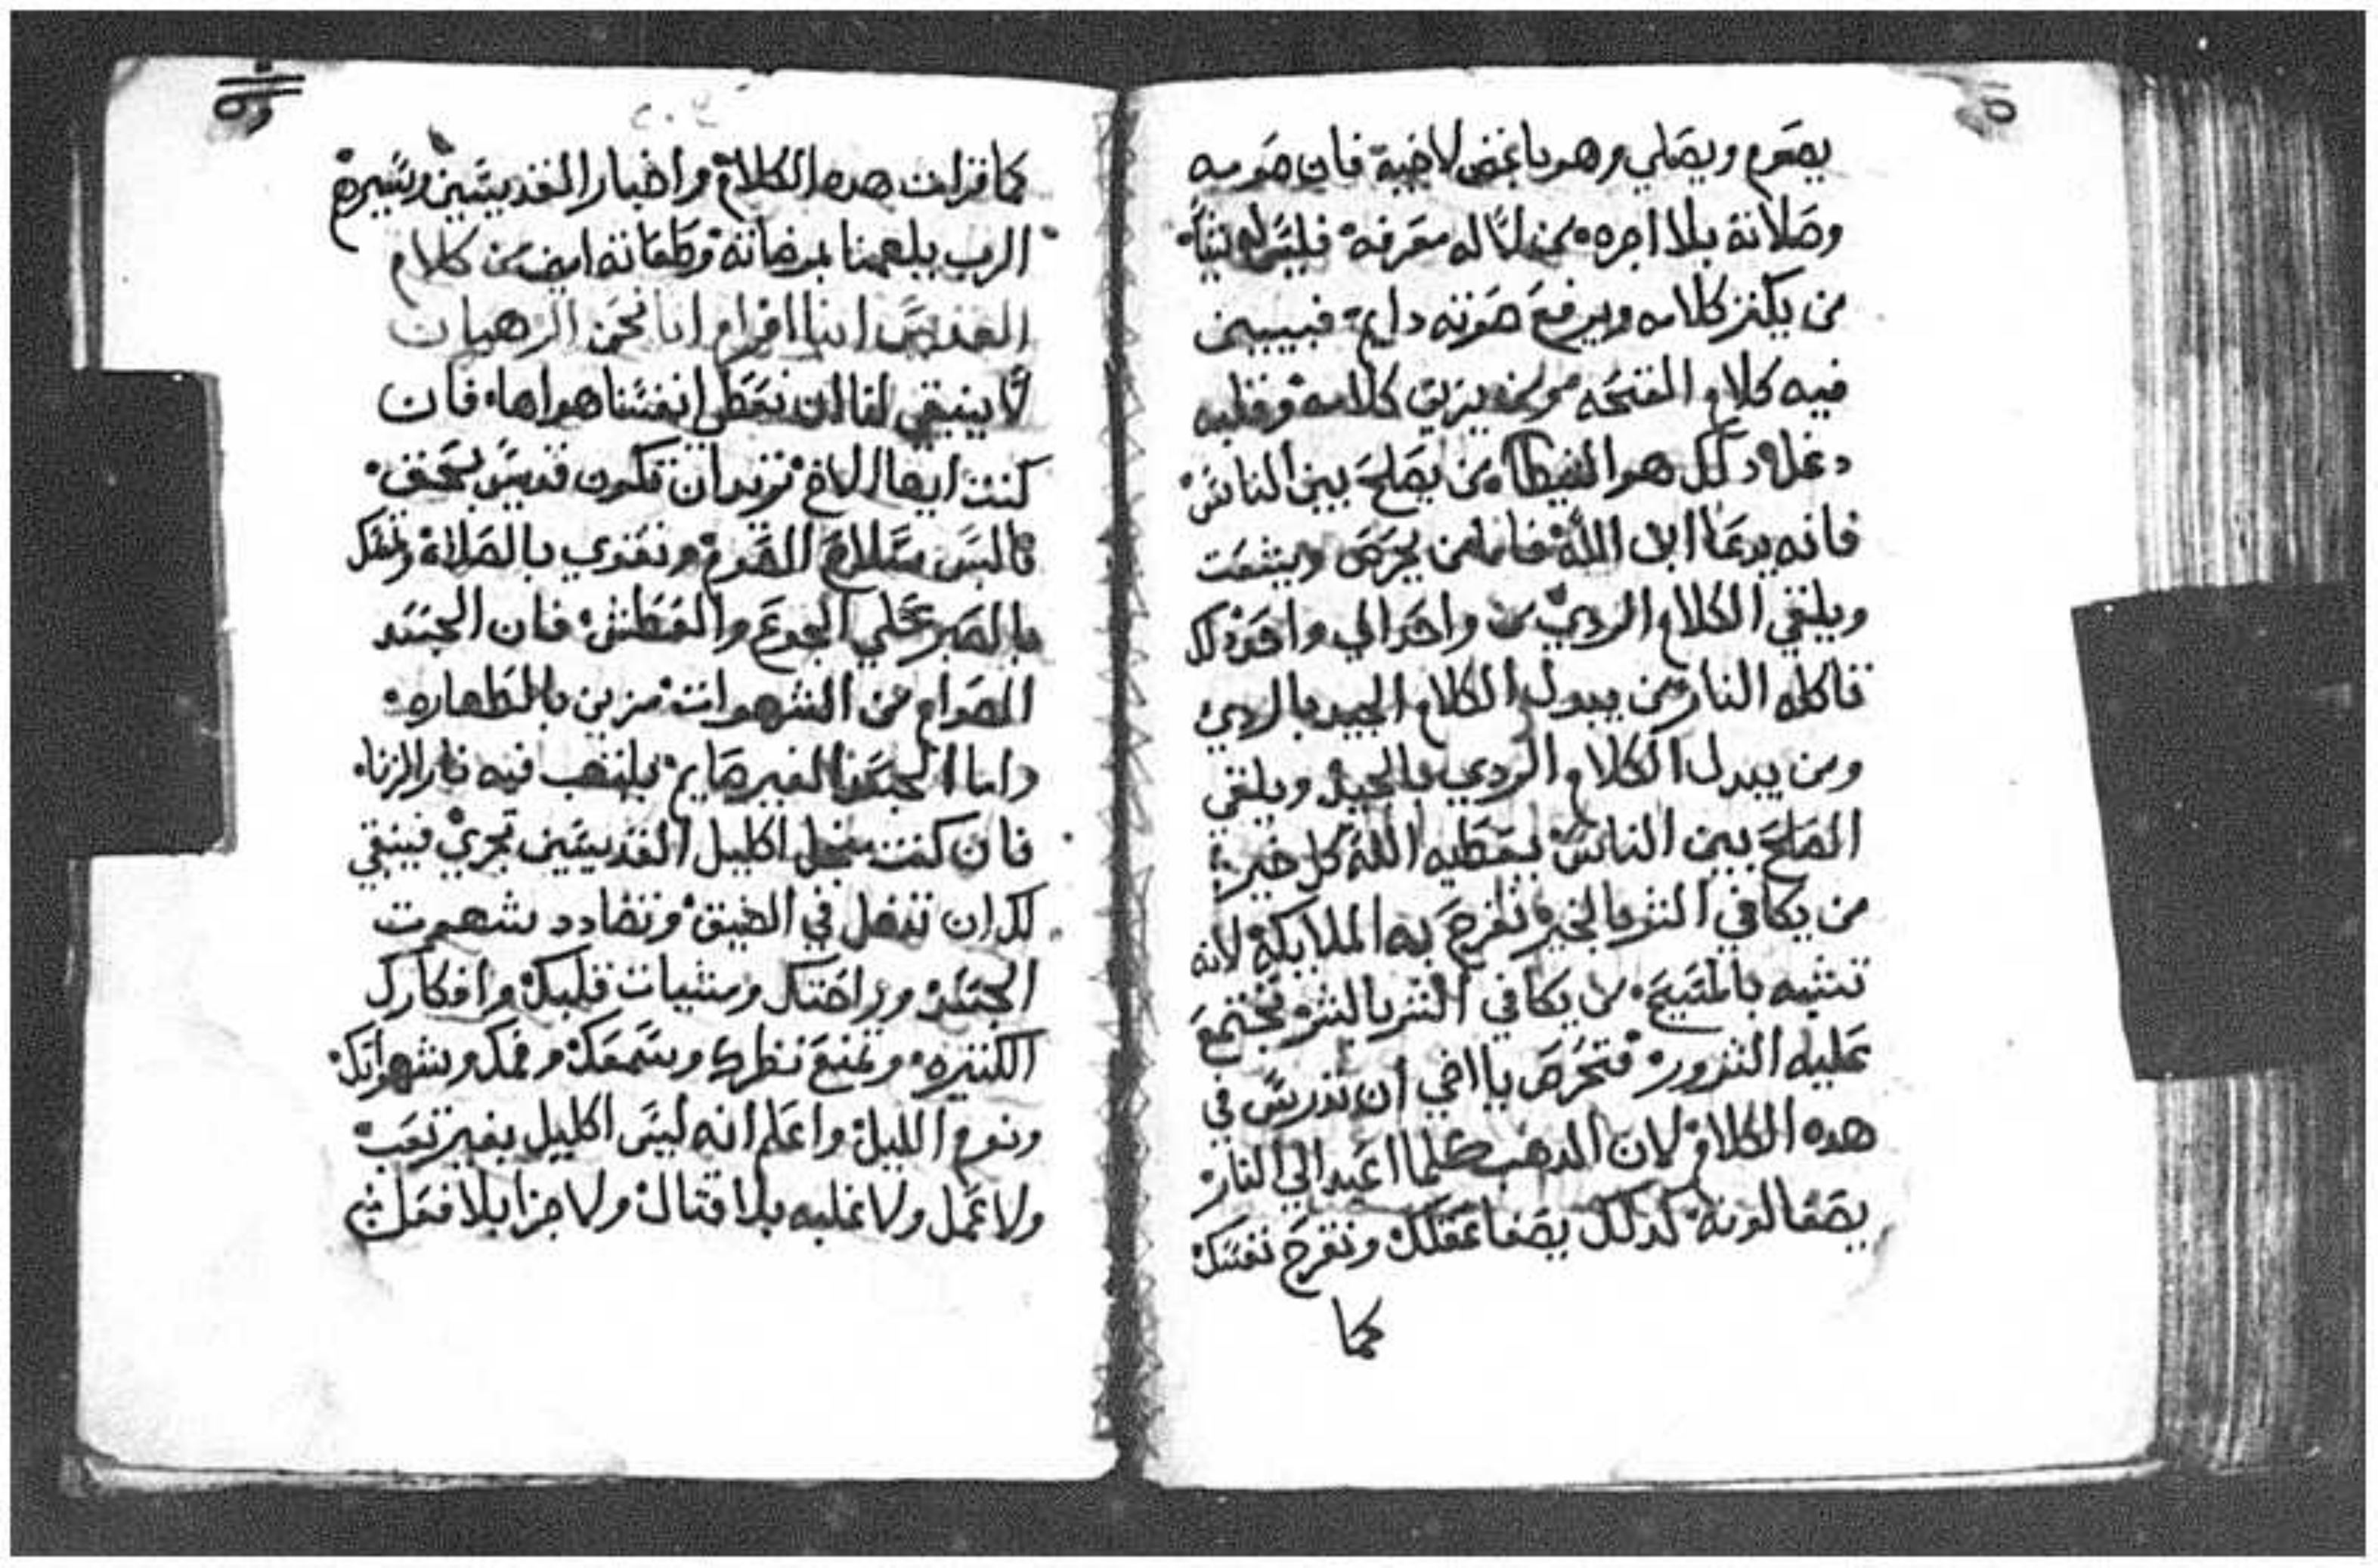 يصوم ويصلي وهو باغض لاخيه فان صومه
وصلاته بلا اجره من لا له معرفه فليس له
من يكتر كلامه ويرفع صوته دايم فيبين
فيه كلام القتحه من يزين كلامه وقلبه
دغل دلك هو الشيطان من يصلح بين الناس
فانه يدعا ابن الله فاما من يحرص ويشمت
ويلقي الكلام الردي من واحد الي واحد
تاكله النار من يبدل الكلام الجيد بالردي
ومن يبدل الكلام الردي بالجيد ويلقي
الصلح بين الناس يعطيه الله كل خير
من يكافي الشر بالخير تفرح به الملايكة لانه
تشبه بالمسيح من يكافي الشر بالشر تجتمع
عليه الشرور فتحرص يا اخي ان تدرس في
هده الكلام لان الدهب كلما اعيد الي النار
يصفا لونه كدلك يصفا عقلك وتفرح نفسك
كما
كما قرات هده الكلام واخبار القديسين وسيرهم
الرب يلهمنا مرضاته وطاعاته امين من كلام
القديس انبا افرام انا نحن الرهبان
لا ينبغي لنا ان نعطي انفسنا هواها فان
كنت ايها الاخ تريد ان تكون قديس بحق
فالبس سلاح الصوم وتقوي بالصلاة
بالصبر علي الجوع والعطش فان الجسد
الصوام من الشهوات مزين بالطهاره
واما الجسد الغير صايم يلتهب فيه نار الزنا
فان كنت اكليل القديسين تجري فينبغي
لك ان تدخل في الضيق وتضادد شهوت
الجسد وراحتك ومشيات قلبك وافكارك
الكتيره وتمنع نظرك وسمعك وفمك وشهواتك
ونوم الليل واعلم انه ليس اكليل بغير تعب
ولا عمل ولا غلبه بلا قتال ولا جزا بلا فعل